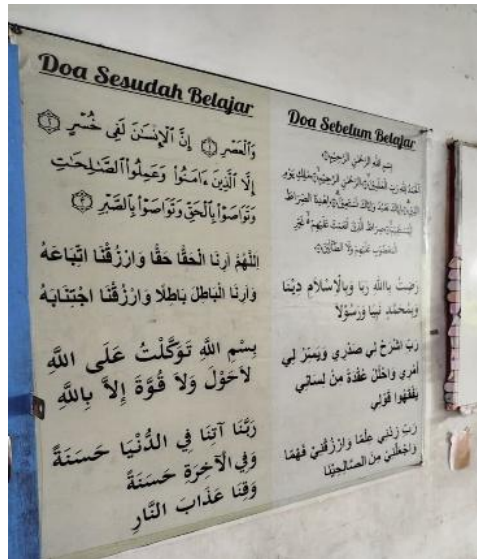 Doa Sesudah Belajar
وَالْعَصْرِ ۝١ إِنَّ ٱلْإِنسَـٰنَ لَفِى خُسْرٍ ۝٢
إِلَّا ٱلَّذِينَ ءَامَنُوا۟ وَعَمِلُوا۟ ٱلصَّـٰلِحَـٰتِ
وَتَوَاصَوْا۟ بِٱلْحَقِّ وَتَوَاصَوْا۟ بِٱلصَّبْرِ ۝٣
اللّٰهُمَّ أَرِنَا الْحَقَّا حَقًّا وَارْزُقْنَا اتِّبَاعَهُ
وَأَرِنَا الْبَاطِلَ بَاطِلًا وَارْزُقْنَا اجْتِنَابَهُ
بِسْمِ اللَّهِ تَوَكَّلْتُ عَلَى اللَّهِ
لاَحَوْلَ وَلاَ قُوَّةَ إِلاَّ بِاللَّهِ
رَبَّنَا آتِنَا فِي الدُّنْيَا حَسَنَةً
وَفِي الْآخِرَةِ حَسَنَةً
وَقِنَا عَذَابَ النَّارِ
Doa Sebelum Belajar
بِسْمِ اللَّهِ الرَّحْمٰنِ الرَّحِيْمِ
اَلْحَمْدُ لِلَّهِ رَبِّ الْعٰلَمِيْنَ الرَّحْمٰنِ الرَّحِيْمِ مٰلِكِ يَوْمِ
الدِّيْنِ اِيَّاكَ نَعْبُدُ وَاِيَّاكَ نَسْتَعِيْنُ اِهْدِنَا الصِّرَاطَ
الْمُسْتَقِيْمَ صِرَاطَ الَّذِيْنَ اَنْعَمْتَ عَلَيْهِمْ غَيْرِ
الْمَغْضُوْبِ عَلَيْهِمْ وَلَا الضَّآلِّيْنَ
رَضِيتُ بِااللهِ رَبَا وَبِالْاِسْلَامِ دِيْنَا
وَبِمُحَمَّدٍ نَبِيَا وَرَسُوْلَا
رَبِّ اشْرَحْ لِي صَدْرِي وَيَسِّرْ لِي
أَمْرِي وَاحْلُلْ عُقْدَةً مِنْ لِسَانِي
يَفْقَهُوا قَوْلِي
رَبِّ زِدْنِي عِلْمًا وَارْزُقْنِيْ فَهْمًا
وَاجْعَلْنِيْ مِنَ الصَّالِحِيْنَا